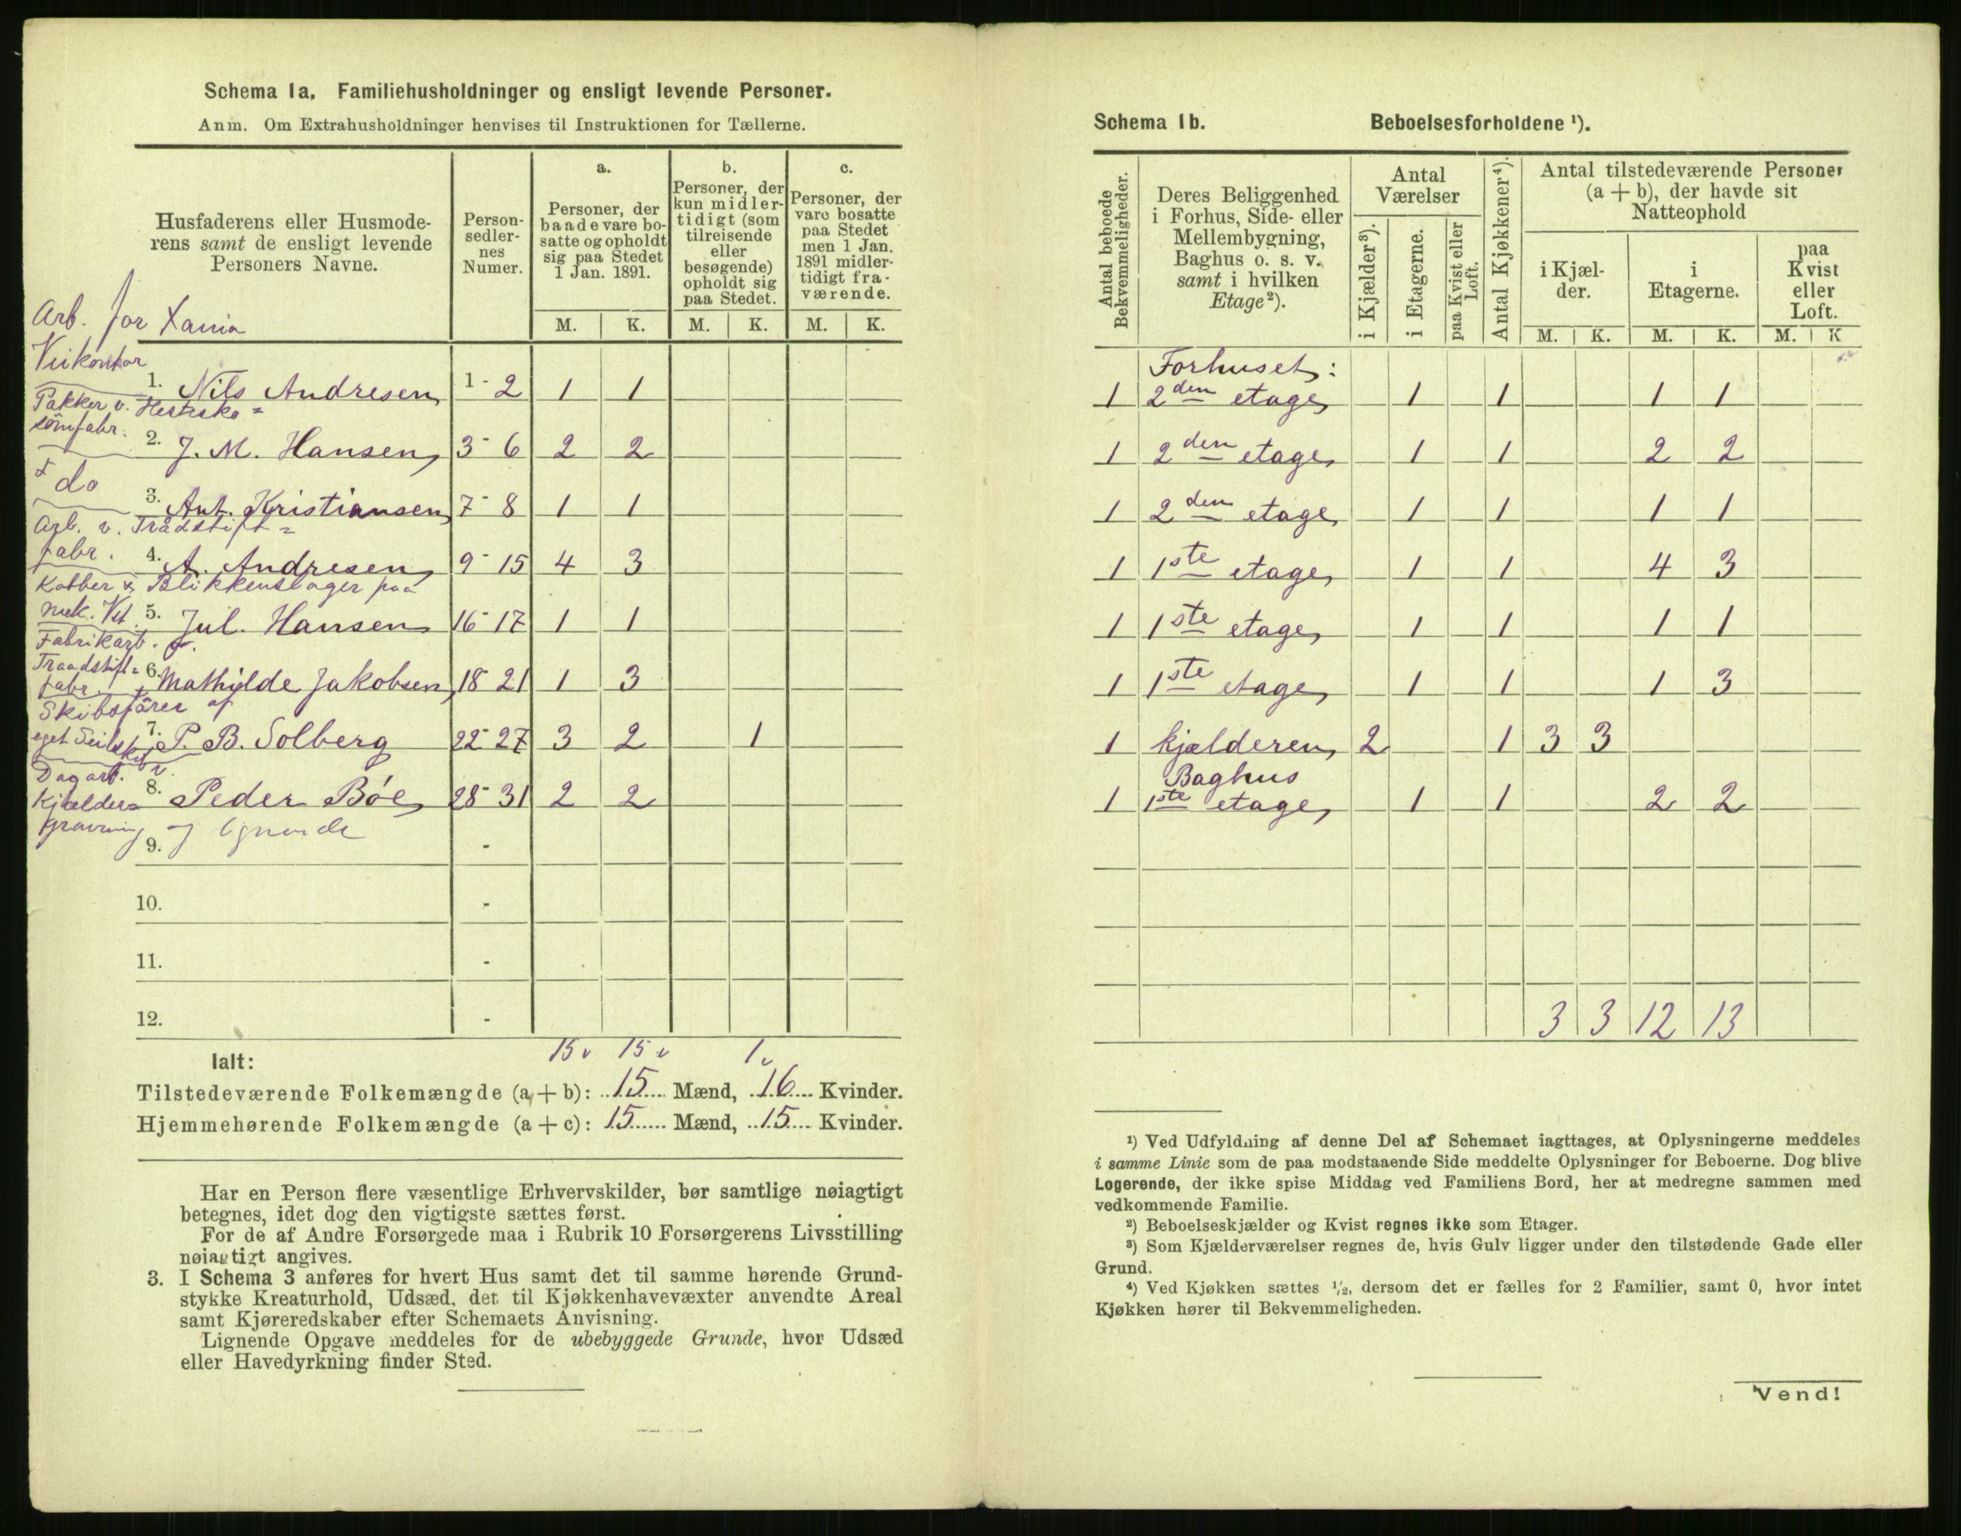 Schema 1a. Familiehusholdninger og ensligt levende Personer.
Anm. Om Extrahusholdninger henvises til Instruktionen for Tællerne.
Husfaderens eller Husmoderens samt de ensligt levende Personers Navne.
Personsedlernes Numer.
a. Personer, der baade vare bosatte og opholdt sig paa Stedet 1 Jan. 1891.
b. Personer, der kun midlertidigt (som tilreisende eller besøgende) opholdt sig paa Stedet.
c. Personer, der vare bosatte paa Stedet men 1 Jan. 1891 midlertidigt fraværende.
M. K. M. K. M. K.
Arb. for Xania
Veikontor
1. Nils Andresen 1 - 2 1 1
Pakker v. Hestesko=
sömfabr.
2. J. M. Hansen 3 - 6 2 2
do
3. Ant. Kristiansen 7 - 8 1 1
Arb. v. Trådstift=
fabr.
4. A. Andresen 9 - 15 4 3
Kobber & Blikkenslager paa
mek. Vst.
5. Jul. Hansen 16 - 17 1 1
Fabrikarb.
Traadstift=
fabr.
6. Mathilde Jakobsen 18 - 21 1 3
Skibsförer af
eget Seilskib
7. P. B. Solberg 22 - 27 3 2 1
Dagarb. v.
Kjælder=
8. Peder Böe 28 - 31 2 2
gravning og lignende
9. -
10. -
11. -
12. -
Ialt: 15 15 1
Tilstedeværende Folkemængde (a + b): 15 Mænd, 16 Kvinder.
Hjemmehørende Folkemængde (a + c): 15 Mænd, 15 Kvinder.
Har en Person flere væsentlige Erhvervskilder, bør samtlige nøiagtigt
betegnes, idet dog den vigtigste sættes først.
For de af Andre Forsørgede maa i Rubrik 10 Forsørgerens Livsstilling
nøiagtigt angives.
3. I Schema 3 anføres for hvert Hus samt det til samme hørende Grund-
stykke Kreaturhold, Udsæd, det til Kjøkkenhavevæxter anvendte Areal
samt Kjøreredskaber efter Schemaets Anvisning.
Lignende Opgave meddeles for de ubebyggede Grunde, hvor Udsæd
eller Havedyrkning finder Sted.
Schema 1b. Beboelsesforholdene ¹).
Antal beboede Bekvemmeligheder.
Deres Beliggenhed i Forhus, Side- eller Mellembygning, Baghus o. s. v. samt i hvilken Etage²).
Antal Værelser
i Kjælder³).
i Etagerne.
paa Kvist eller Loft.
Antal Kjøkkener⁴).
Antal tilstedeværende Personer (a + b), der havde sit Natteophold
i Kjælder.
i Etagerne.
paa Kvist eller Loft.
M. K. M. K. M. K
Forhuset:
1 2den etage 1 1 1 1
1 2den etage 1 1 2 2
1 2den etage 1 1 1 1
1 1ste etage 1 1 4 3
1 1ste etage 1 1 1 1
1 1ste etage 1 1 1 3
1 kjælderen 2 1 3 3
Baghus
1 1ste etage 1 1 2 2
3 3 12 13
¹) Ved Udfyldning af denne Del af Schemaet iagttages, at Oplysningerne meddeles
i samme Linie som de paa modstaaende Side meddelte Oplysninger for Beboerne. Dog blive
Logerende, der ikke spise Middag ved Familiens Bord, her at medregne sammen med
vedkommende Familie.
²) Beboelseskjælder og Kvist regnes ikke som Etager.
³) Som Kjælderværelser regnes de, hvis Gulv ligger under den tilstødende Gade eller
Grund.
⁴) Ved Kjøkken sættes ½, dersom det er fælles for 2 Familier, samt 0, hvor intet
Kjøkken hører til Bekvemmeligheden.
Vend!